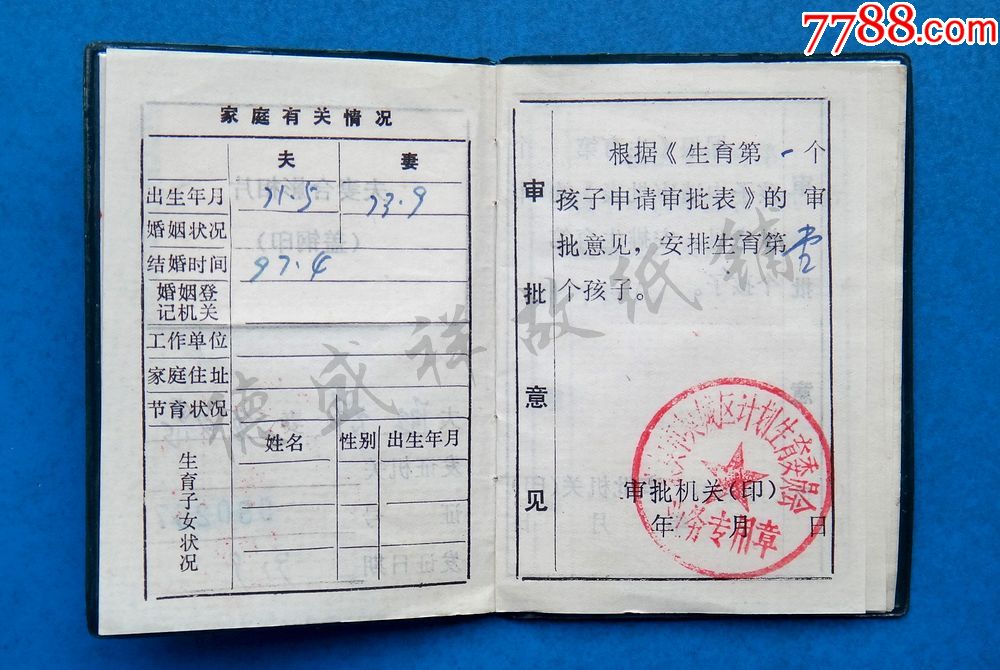 7788.com
家庭有关情况
夫 妻
出生年月 71.5 73.9
婚姻状况
结婚时间 97.4
婚姻登
记机关
工作单位
家庭住址
节育状况
生育子女状况 姓名 性别 出生年月
审批意见
根据《生育第一个
孩子申请审批表》的审
批意见，安排生育第壹
个孩子。
区计划生育委员会
专用章
审批机关(印)
年 月 日
德盛祥故纸铺